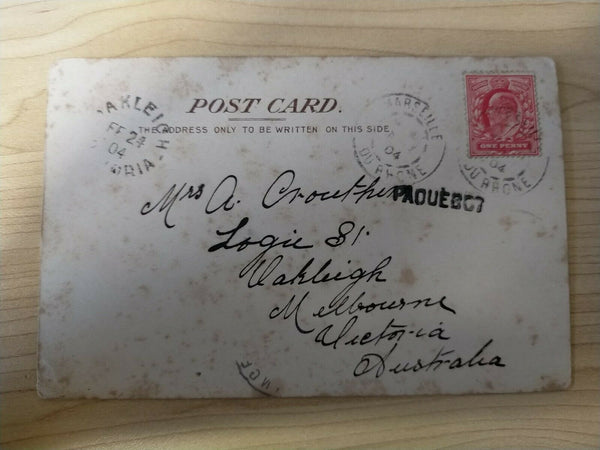 OAKLEIGH
FE 24
04
VICTORIA
POST CARD.
THE ADDRESS ONLY TO BE WRITTEN ON THIS SIDE.
MARSEILLE
04
DU RHONE
ONE PENNY
04
DU RHONE
PAQUEBOT
Mrs A. Crouther
Logie St.
Oakleigh
Melbourne
Victoria
Australia